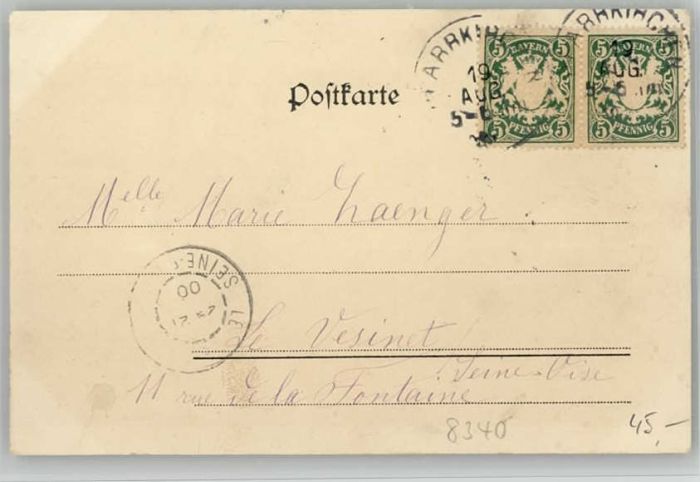 ARRKIRCHEN
19
AUG
5-6
5 BAYERN 5
5 PFENNIG 5
ARRKIRCHEN
19
AUG.
5-6
5 BAYERN 5
5 PFENNIG 5
Postkarte
Melle Marie Zaenger.
LE SEINE
00
Le Vesinet
Seine-Oise
11 rue de la Fontaine
8340
45,-